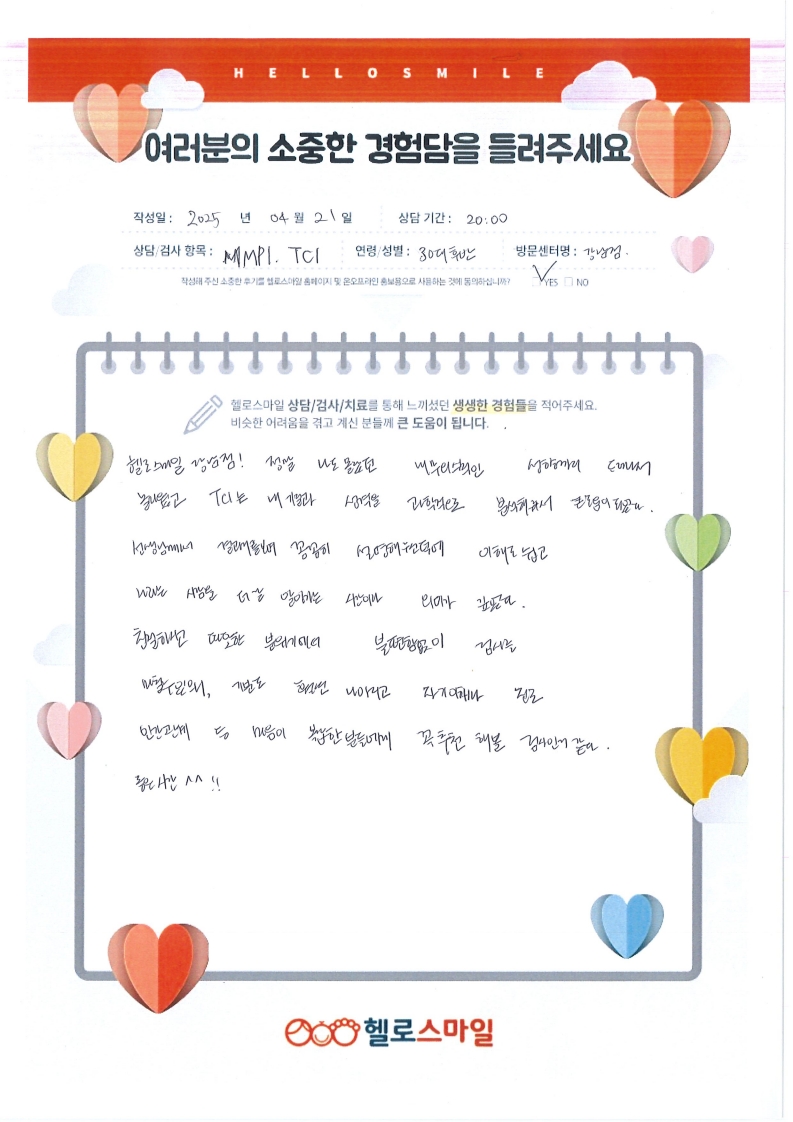 HELLOSMILE
여러분의 소중한 경험담을 들려주세요
작성일 : 2025 년 04 월 21 일 상담 기간 : 20:00
상담/검사 항목 : MMPI. TCI 연령/성별 : 30대 후반 방문센터명 : 강남점.
작성해 주신 소중한 후기를 헬로스마일 홈페이지 및 온오프라인 홍보용으로 사용하는 것에 동의하십니까? YES NO
헬로스마일 상담/검사/치료를 통해 느끼셨던 생생한 경험들을 적어주세요.
비슷한 어려움을 겪고 계신 분들께 큰 도움이 됩니다.
헬로스마일 강남점! 정말 나도 몰랐던 내 무의식적인 성향까지
놀라웠고 TCI는 내 기질과 성격을 과학적으로 분석해줘서 큰 도움이 되었다.
선생님께서 결과지를보며 꼼꼼히 설명해 주신덕에 이해도 쉽고
나라는 사람을 더 잘 알아가는 시간이라 의미가 깊었다.
친절하셨고 따뜻한 분위기에서 불편함없이 검사를
마칠수 있었고, 기분도 한결 나아지고 자기이해나 진로
인간관계 등 마음이 복잡한 분들에게 꼭 추천 해볼 검사인거 같다.
좋은 시간 ^^ !!
헬로스마일